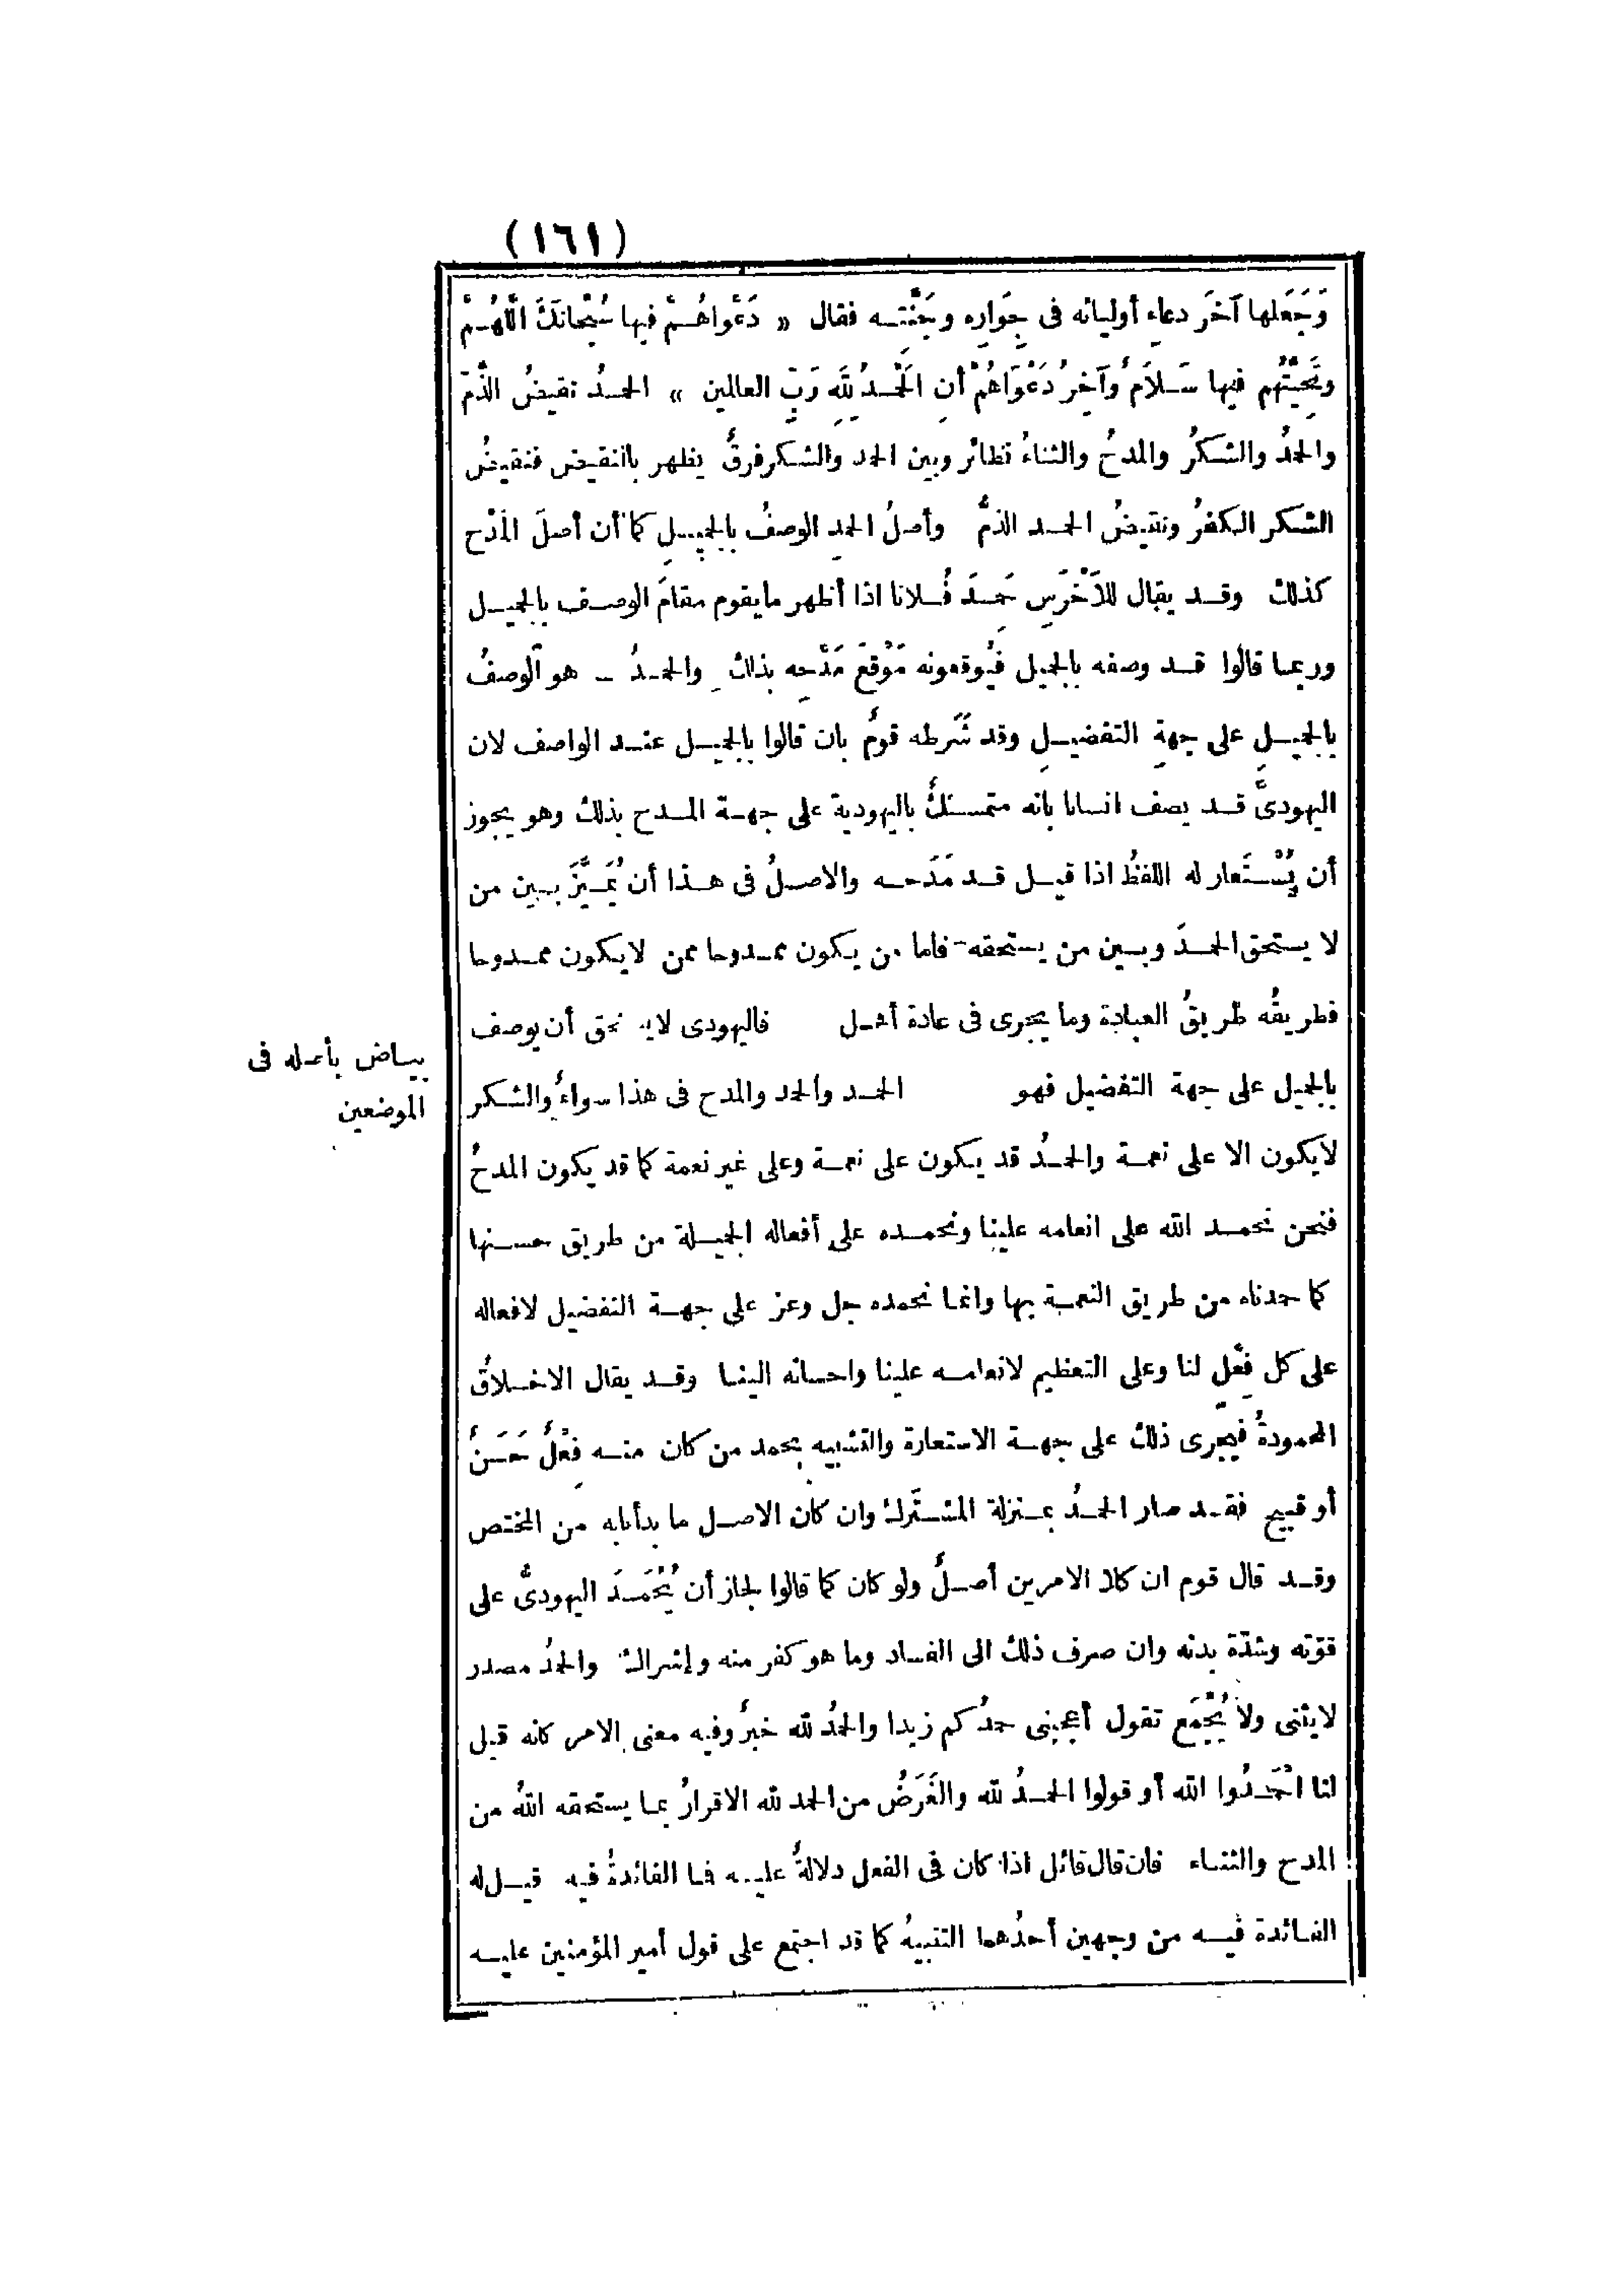 (١٦١)
وَجَعَلها آخَر دعاءِ أوليائه فى جِوارِه وجَنَّتِه فقال « دَعْواهُمْ فيها سُبْحانَكَ اللَّهُمَّ
وتَحِيَّتُهم فيها سَلاَمٌ وآخِرُ دَعْوَاهُمْ أنِ الحَمْدُ للهِ رَبِّ العالمين » الحمدُ نقيضُ الذَّمّ
والحمدُ والشكرُ والمدحُ والثناءُ نظائر وبين الحمد والشكر فرقٌ يظهر بالنقيض فنقيضُ
الشكر الكفرُ ونقيضُ الحمد الذمُّ وأصلُ الحمدِ الوصفُ بالجميلِ كما أن أصلَ المَدْح
كذلك وقد يقال للأَخْرَسِ حَمِدَ فُلانا اذا أظهر مايقوم مقامَ الوصف بالجميل
وربما قالوا قد وصفه بالجميل فيُوقعونه مَوْقِعَ مَدْحِه بذلك والحمدُ - هو الوصفُ
بالجميلِ على جهةِ التفضيلِ وقد شَرَطه قومٌ بان قالوا بالجميل عند الواصف لان
اليهودىَّ قد يصف انسانا بانه متمسكٌ باليهودية على جهة المدح بذلك وهو يجوز
أن يُسْتَعار له اللفظُ اذا قيل قد مَدَحه والاصلُ فى هذا أن يُمَيَّزَ بين من
لا يستحق الحمدَ وبين من يستحقه فاما من يكون ممدوحا ممن لايكون ممدوحا
فطريقُه طريقُ العبادة وما يجرى فى عادة أهل فاليهودى لا أن يوصف
بالجميل على جهة التفضيل فهو الحمد والحمد والمدح فى هذا سواءٌ والشكر
بياض بأصله فى
الموضعين
لايكون الا على نعمة والحمدُ قد يكون على نعمة وعلى غير نعمة كما قد يكون المدحُ
فنحن نحمد الله على انعامه علينا ونحمده على أفعاله الجميلة من طريق حسنها
كما حمدناه من طريق النعمة بها وانما نحمده جل وعز على جهة التفضيل لافعاله
على كل فِعْلٍ لنا وعلى التعظيم لانعامه علينا واحسانه الينا وقد يقال الاخلاقُ
المحمودةُ فيَجْرِى ذلك على جهة الاستعارة والتشبيه بحمد من كان منه فِعْلٌ حَسَنٌ
أو قبيح فقد صار الحمدُ بمنزلة المشترَك وان كان الاصل ما بدأنابه من المختص
وقد قال قوم ان كلا الامرين أصلٌ ولو كان كما قالوا لجاز أن يُحْمَدَ اليهودىُّ على
قوّته وشدّة بدنه وان صرف ذلك الى الفساد وما هو كفر منه وإشراك والحمدُ مصدر
لايثنى ولا يُجْمَع تقول أعجبنى حمدُكم زيدا والحمدُ لله خبرٌ وفيه معنى الامر كانه قيل
لنا احْمَدُوا الله أو قولوا الحمدُ لله والغَرَضُ من الحمد لله الاقرارُ بما يستحقه اللهُ من
المدح والثناء فان قال قائل اذا كان فى الفعل دلالةٌ عليه فما الفائدةُ فيه قيل له
الفائدة فيه من وجهين أحدُهما التنبيهُ كما قد اجتمع على قول أمير المؤمنين عليه